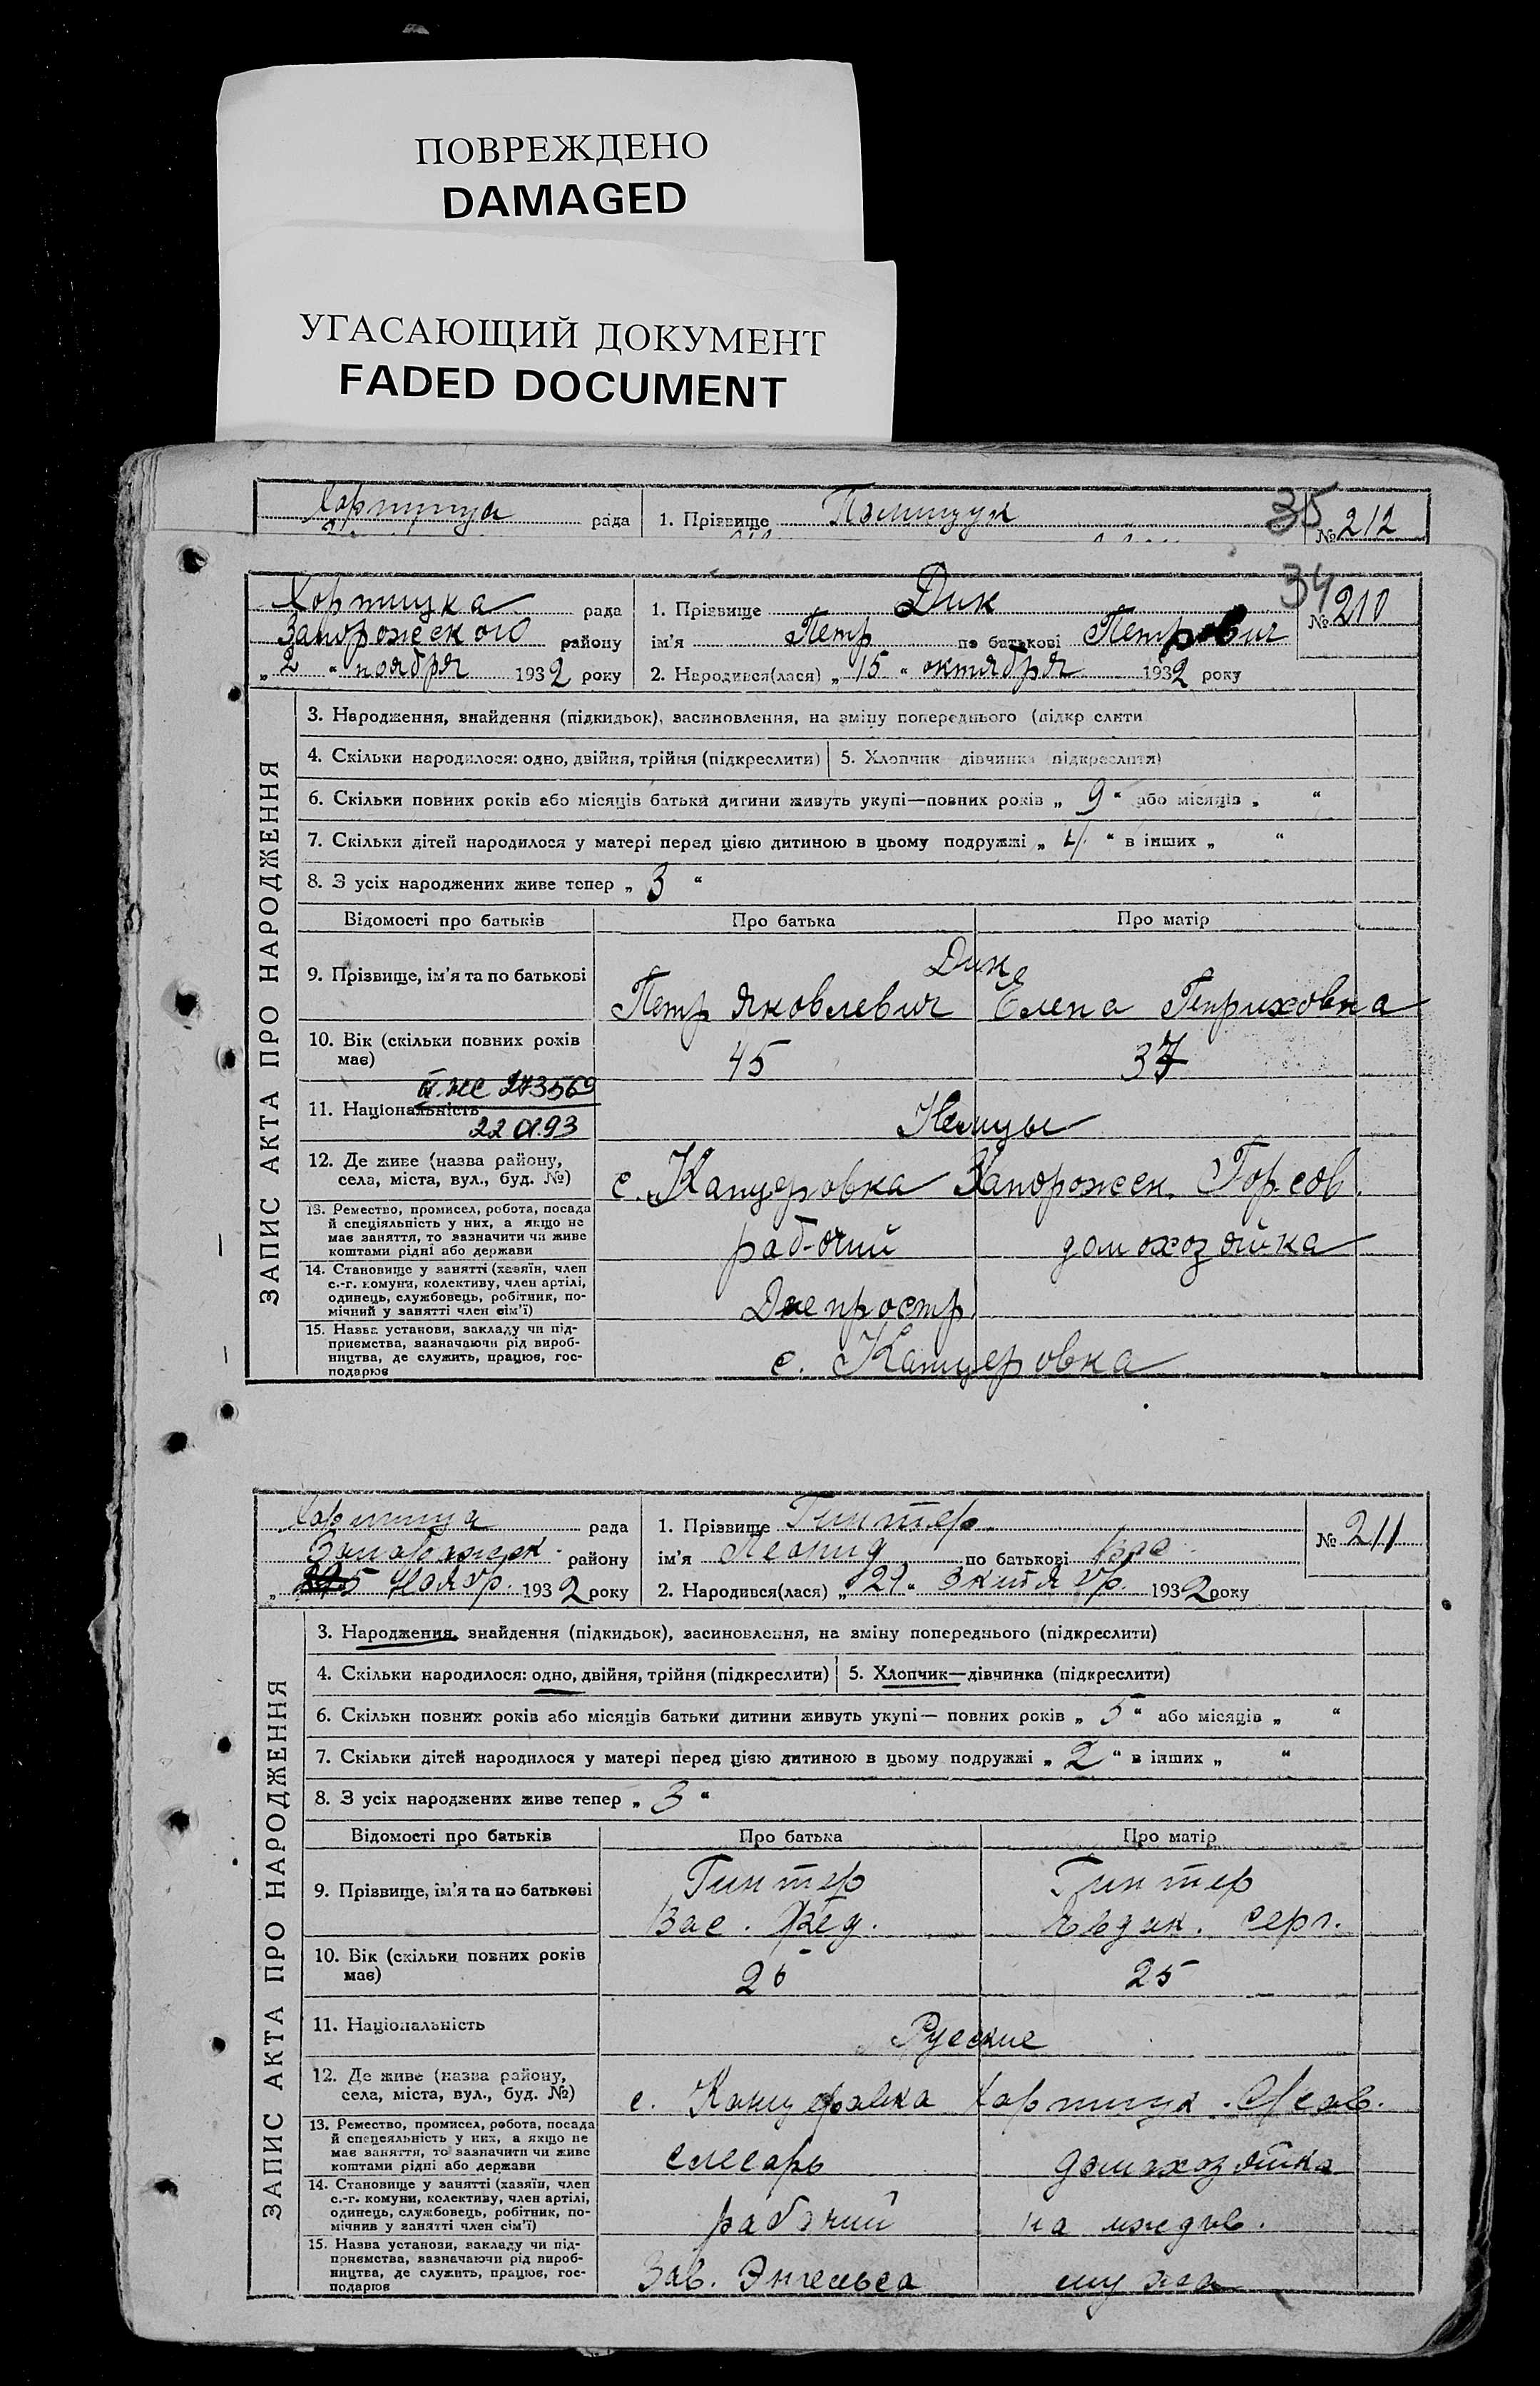 ПОВРЕЖДЕНО
DAMAGED
УГАСАЮЩИЙ ДОКУМЕНТ
FADED DOCUMENT
Хортица рада 1. Прізвище Полищук 35 № 212
Хортицка рада 1. Прізвище Дик 34 № 210
Запорожского району ім'я Петр по батькові Петрович
„ 2 “ ноября 1932 року 2. Народився(лася) „ 15 “ октября 1932 року
ЗАПИС АКТА ПРО НАРОДЖЕННЯ
3. Народження, знайдення (підкидьок), засиновлення, на зміну попереднього (підкр слити
4. Скільки народилося: одно, двійня, трійня (підкреслити) 5. Хлопчик дівчинка (підкреслити)
6. Скільки повних років або місяців батьки дитини живуть укупі—повних років „ 9 “ або місяців „ “
7. Скільки дітей народилося у матері перед цією дитиною в цьому подружжі „ 4 “ в інших „ “
8. З усіх народжених живе тепер „ 3 “
Відомості про батьків Про батька Про матір
Дик
9. Прізвище, ім'я та по батькові Петр Яковлевич Елена Генриховна
10. Вік (скільки повних років має) 45 37
273569
11. Національність Немцы
22 93
12. Де живе (назва району, села, міста, вул., буд. №) с. Канцеровка Запорожск. Горсов.
13. Ремество, промисел, робота, посада й спеціяльність у них, а якщо не має заняття, то зазначити чи живе коштами рідні або держави рабочий домохозяйка
14. Становище у занятті (хазяїн, член с.-г. комуни, колективу, член артілі, одинець, службовець, робітник, помічний у занятті член сім'ї) Днепростр.
15. Назва установи, закладу чи підприємства, зазначаючи рід виробництва, де служить, працює, господарює с. Канцеровка
Хортица рада 1. Прізвище Гинтер № 211
Запорожск. району ім'я Леонид по батькові Вас.
„ 5 Ноябр. 1932 року 2. Народився(лася) „ 29 “ Октябр. 1932 року
ЗАПИС АКТА ПРО НАРОДЖЕННЯ
3. Народження, знайдення (підкидьок), засиновлення, на зміну попереднього (підкреслити)
4. Скільки народилося: одно, двійня, трійня (підкреслити) 5. Хлопчик—дівчинка (підкреслити)
6. Скільки повних років або місяців батьки дитини живуть укупі— повних років „ 5 “ або місяців „ “
7. Скільки дітей народилося у матері перед цією дитиною в цьому подружжі „ 2 “ в інших „ “
8. З усіх народжених живе тепер „ 3 “
Відомості про батьків Про батька Про матір
9. Прізвище, ім'я та по батькові Гинтер Гинтер
Вас. Фед. Евдок. Серг.
10. Вік (скільки повних років має) 26 25
11. Національність Русские
12. Де живе (назва району, села, міста, вул., буд. №) с. Канцеровка Хортицк. С/сов.
13. Ремество, промисел, робота, посада й спецеяльність у них, а якщо не має заняття, то зазначити чи живе коштами рідні або держави слесарь домохозяйка
14. Становище у занятті (хазяїн, член с.-г. комуни, колективу, член артілі, одинець, службовець, робітник, помічнив у занятті член сім'ї) рабочий на иждив.
15. Назва установи, закладу чи підприємства, зазначаючи рід виробництва, де служить, працює, господарюв Зав. Энгельса мужа